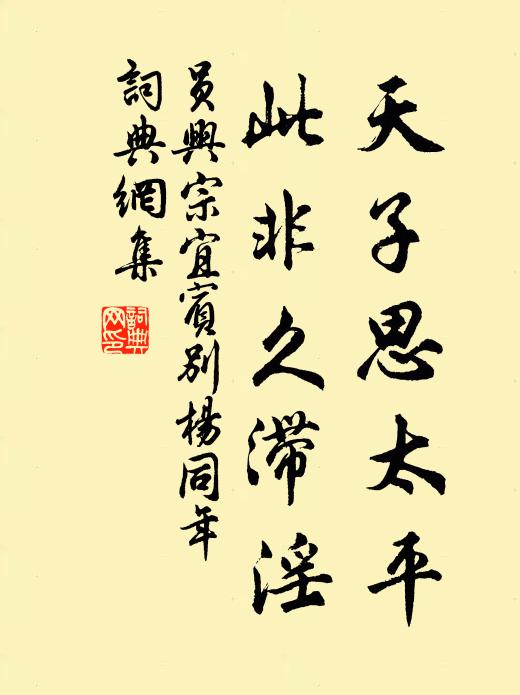 天子思太平
此非久滞淫
员興宗宜賓别楊同年
詞典網集
詞典网印